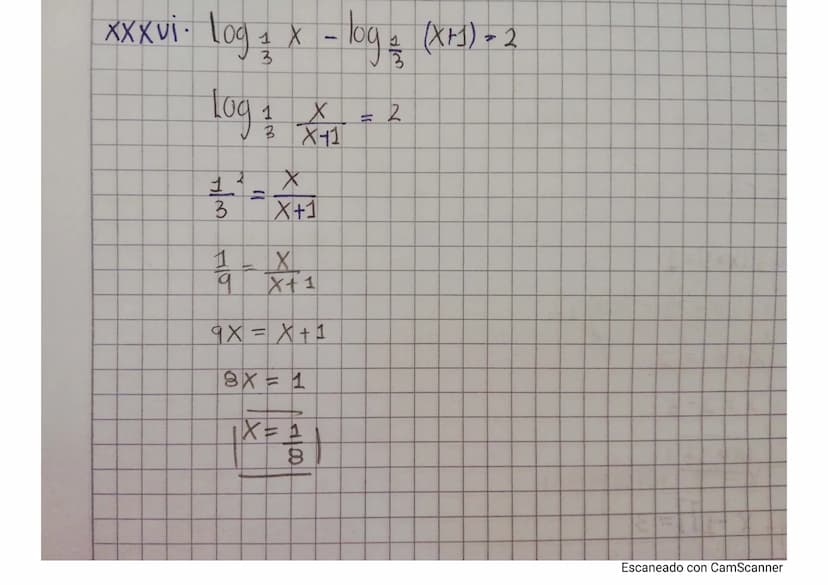 xxxvi. log 1/3 x - log 1/3 (x+1) = 2
log 1/3 x/x+1 = 2
1/3² = x/x+1
1/9 = x/x+1
9x = x+1
8x = 1
x = 1/8
Escaneado con CamScanner